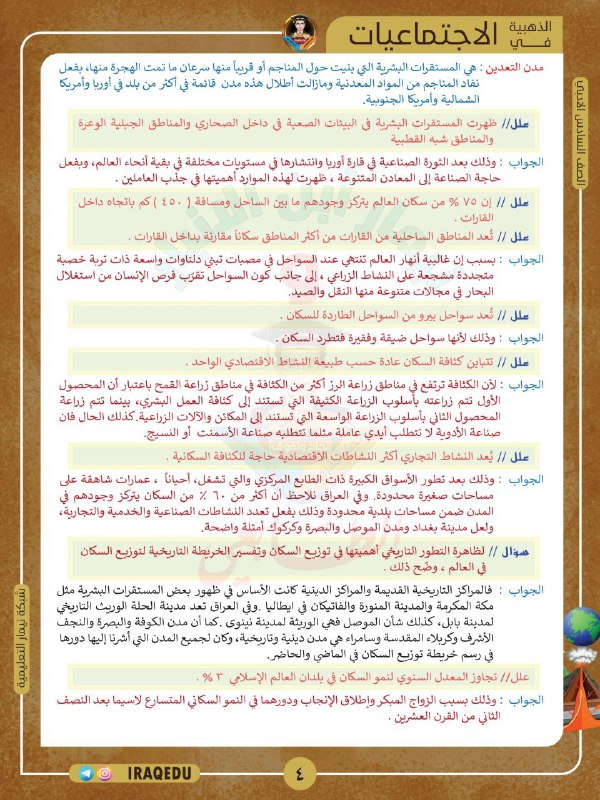 الذهبية
في
الاجتماعيات
الصف السادس الادبي
مدن التعدين : هي المستقرات البشرية التي بنيت حول المناجم أو قريباً منها سرعان ما تمت الهجرة منها، بفعل
نفاد المناجم من المواد المعدنية ومازالت أطلال هذه مدن قائمة في أكثر من بلد في أوربا وأمريكا
الشمالية وأمريكا الجنوبية.
علل// ظهرت المستقرات البشرية في البيئات الصعبة في داخل الصحاري والمناطق الجبلية الوعرة
والمناطق شبه القطبية
الجواب : وذلك بعد الثورة الصناعية في قارة أوربا وانتشارها في مستويات مختلفة في بقية أنحاء العالم، وبفعل
حاجة الصناعة إلى المعادن المتنوعة ، ظهرت لهذه الموارد أهميتها في جذب العاملين .
علل // إن ٧٥ % من سكان العالم يتركز وجودهم ما بين الساحل ومسافة ( ٤٥٠ ) كم باتجاه داخل
القارات .
علل // تُعد المناطق الساحلية من القارات من أكثر المناطق سكاناً مقارنة بداخل القارات .
الجواب : بسبب إن غالبية أنهار العالم تنتهي عند السواحل في مصبات تبني دلتاوات واسعة ذات تربة خصبة
متجددة مشجعة على النشاط الزراعي ، إلى جانب كون السواحل تقرّب فرص الإنسان من استغلال
البحار في مجالات متنوعة منها النقل والصيد.
علل // تُعد سواحل بيرو من السواحل الطاردة للسكان .
الجواب : وذلك لأنها سواحل ضيقة وفقيرة فتطرد السكان .
علل // تتباين كثافة السكان عادة حسب طبيعة النشاط الاقتصادي الواحد .
الجواب : لأن الكثافة ترتفع في مناطق زراعة الرز أكثر من الكثافة في مناطق زراعة القمح باعتبار أن المحصول
الأول تتم زراعته بأسلوب الزراعة الكثيفة التي تستند إلى كثافة العمل البشري، بينما تتم زراعة
المحصول الثاني بأسلوب الزراعة الواسعة التي تستند إلى المكائن والآلات الزراعية.كذلك الحال فان
صناعة الأدوية لا تتطلب أيدي عاملة مثلما تتطلبه صناعة الأسمنت أو النسيج.
علل // يُعد النشاط التجاري أكثر النشاطات الاقتصادية حاجة للكثافة السكانية .
الجواب : وذلك بعد تطور الأسواق الكبيرة ذات الطابع المركزي والتي تشغل، أحياناً ، عمارات شاهقة على
مساحات صغيرة محدودة. وفي العراق نلاحظ أن أكثر من ٦٠ ٪ من السكان يتركز وجودهم في
المدن ضمن مساحات بلدية محدودة وذلك بفعل تعدد النشاطات الصناعية والخدمية والتجارية،
ولعل مدينة بغداد ومدن الموصل والبصرة وكركوك أمثلة واضحة.
سؤال // لظاهرة التطور التاريخي أهميتها في توزيع السكان وتفسير الخريطة التاريخية لتوزيع السكان
في العالم ، وضّح ذلك .
الجواب : فالمراكز التاريخية القديمة والمراكز الدينية كانت الأساس في ظهور بعض المستقرات البشرية مثل
مكة المكرمة والمدينة المنورة والفاتيكان في ايطاليا .وفي العراق تعد مدينة الحلة الوريث التاريخي
لمدينة بابل، كذلك شأن الموصل فهي الوريثة لمدينة نينوى .كما أن مدن الكوفة والبصرة والنجف
الأشرف وكربلاء المقدسة وسامراء هي مدن دينية وتاريخية، وكان لجميع المدن التي أشرنا إليها دورها
في رسم خريطة توزيع السكان في الماضي والحاضر.
علل// تجاوز المعدل السنوي لنمو السكان في بلدان العالم الإسلامي ٣ % .
الجواب : وذلك بسبب الزواج المبكر وإطلاق الإنجاب ودورهما في النمو السكاني المتسارع لاسيما بعد النصف
الثاني من القرن العشرين .
شبكة نيمار التعليمية
IRAQEDU
٤